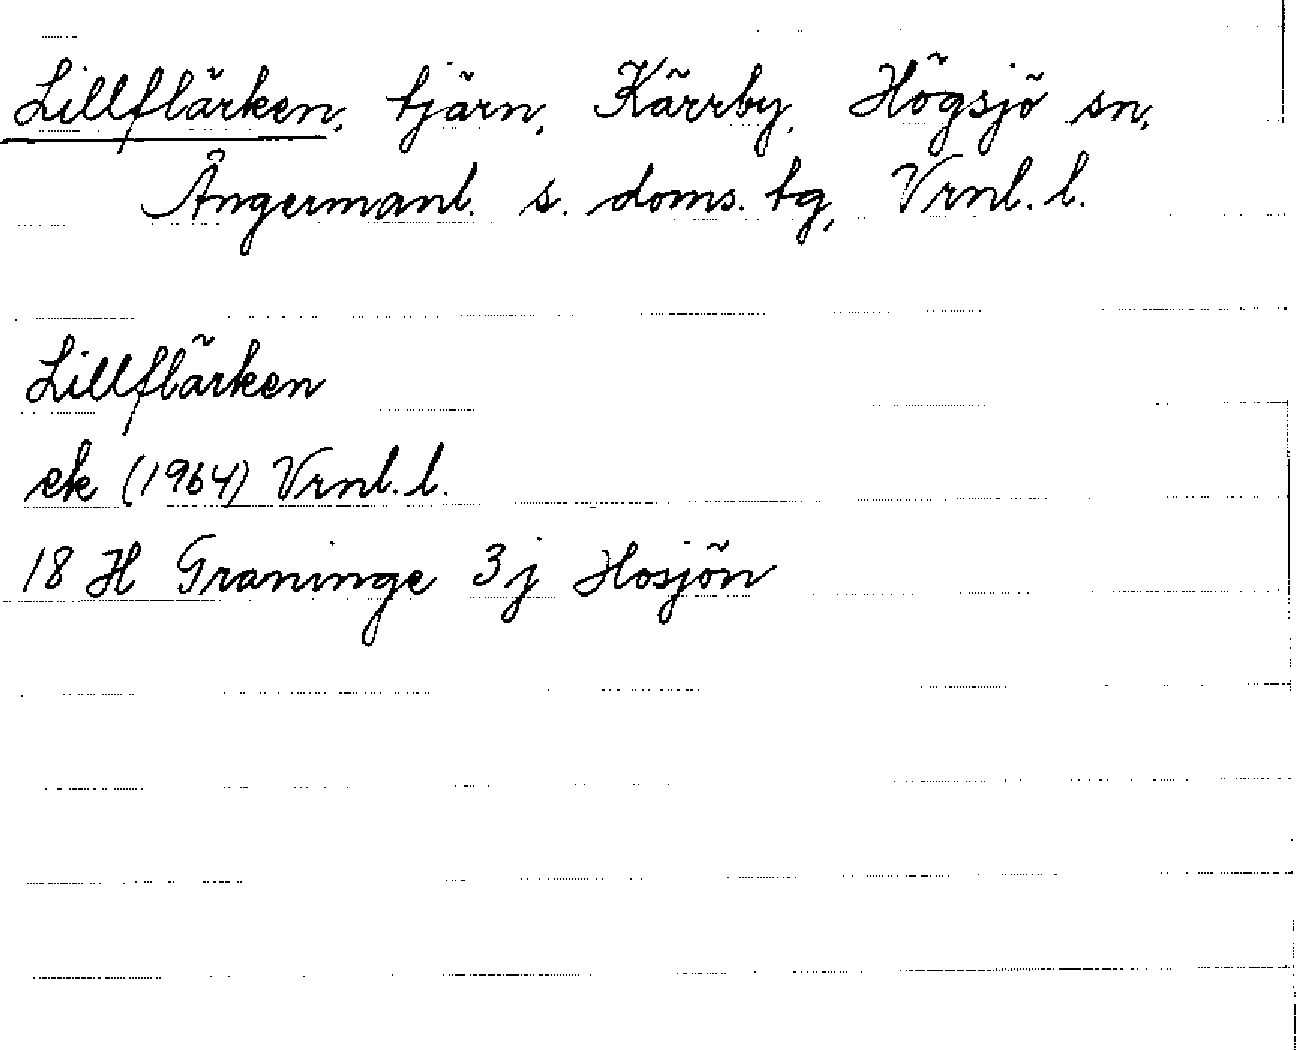 Lillflärken, tjärn, Kärrby, Högsjö sn,
Ångermanl. s. doms. tg, Vrnl. l.
Lillflärken
ek (1964) Vrnl. l.
18 H Graninge 3j Hosjön